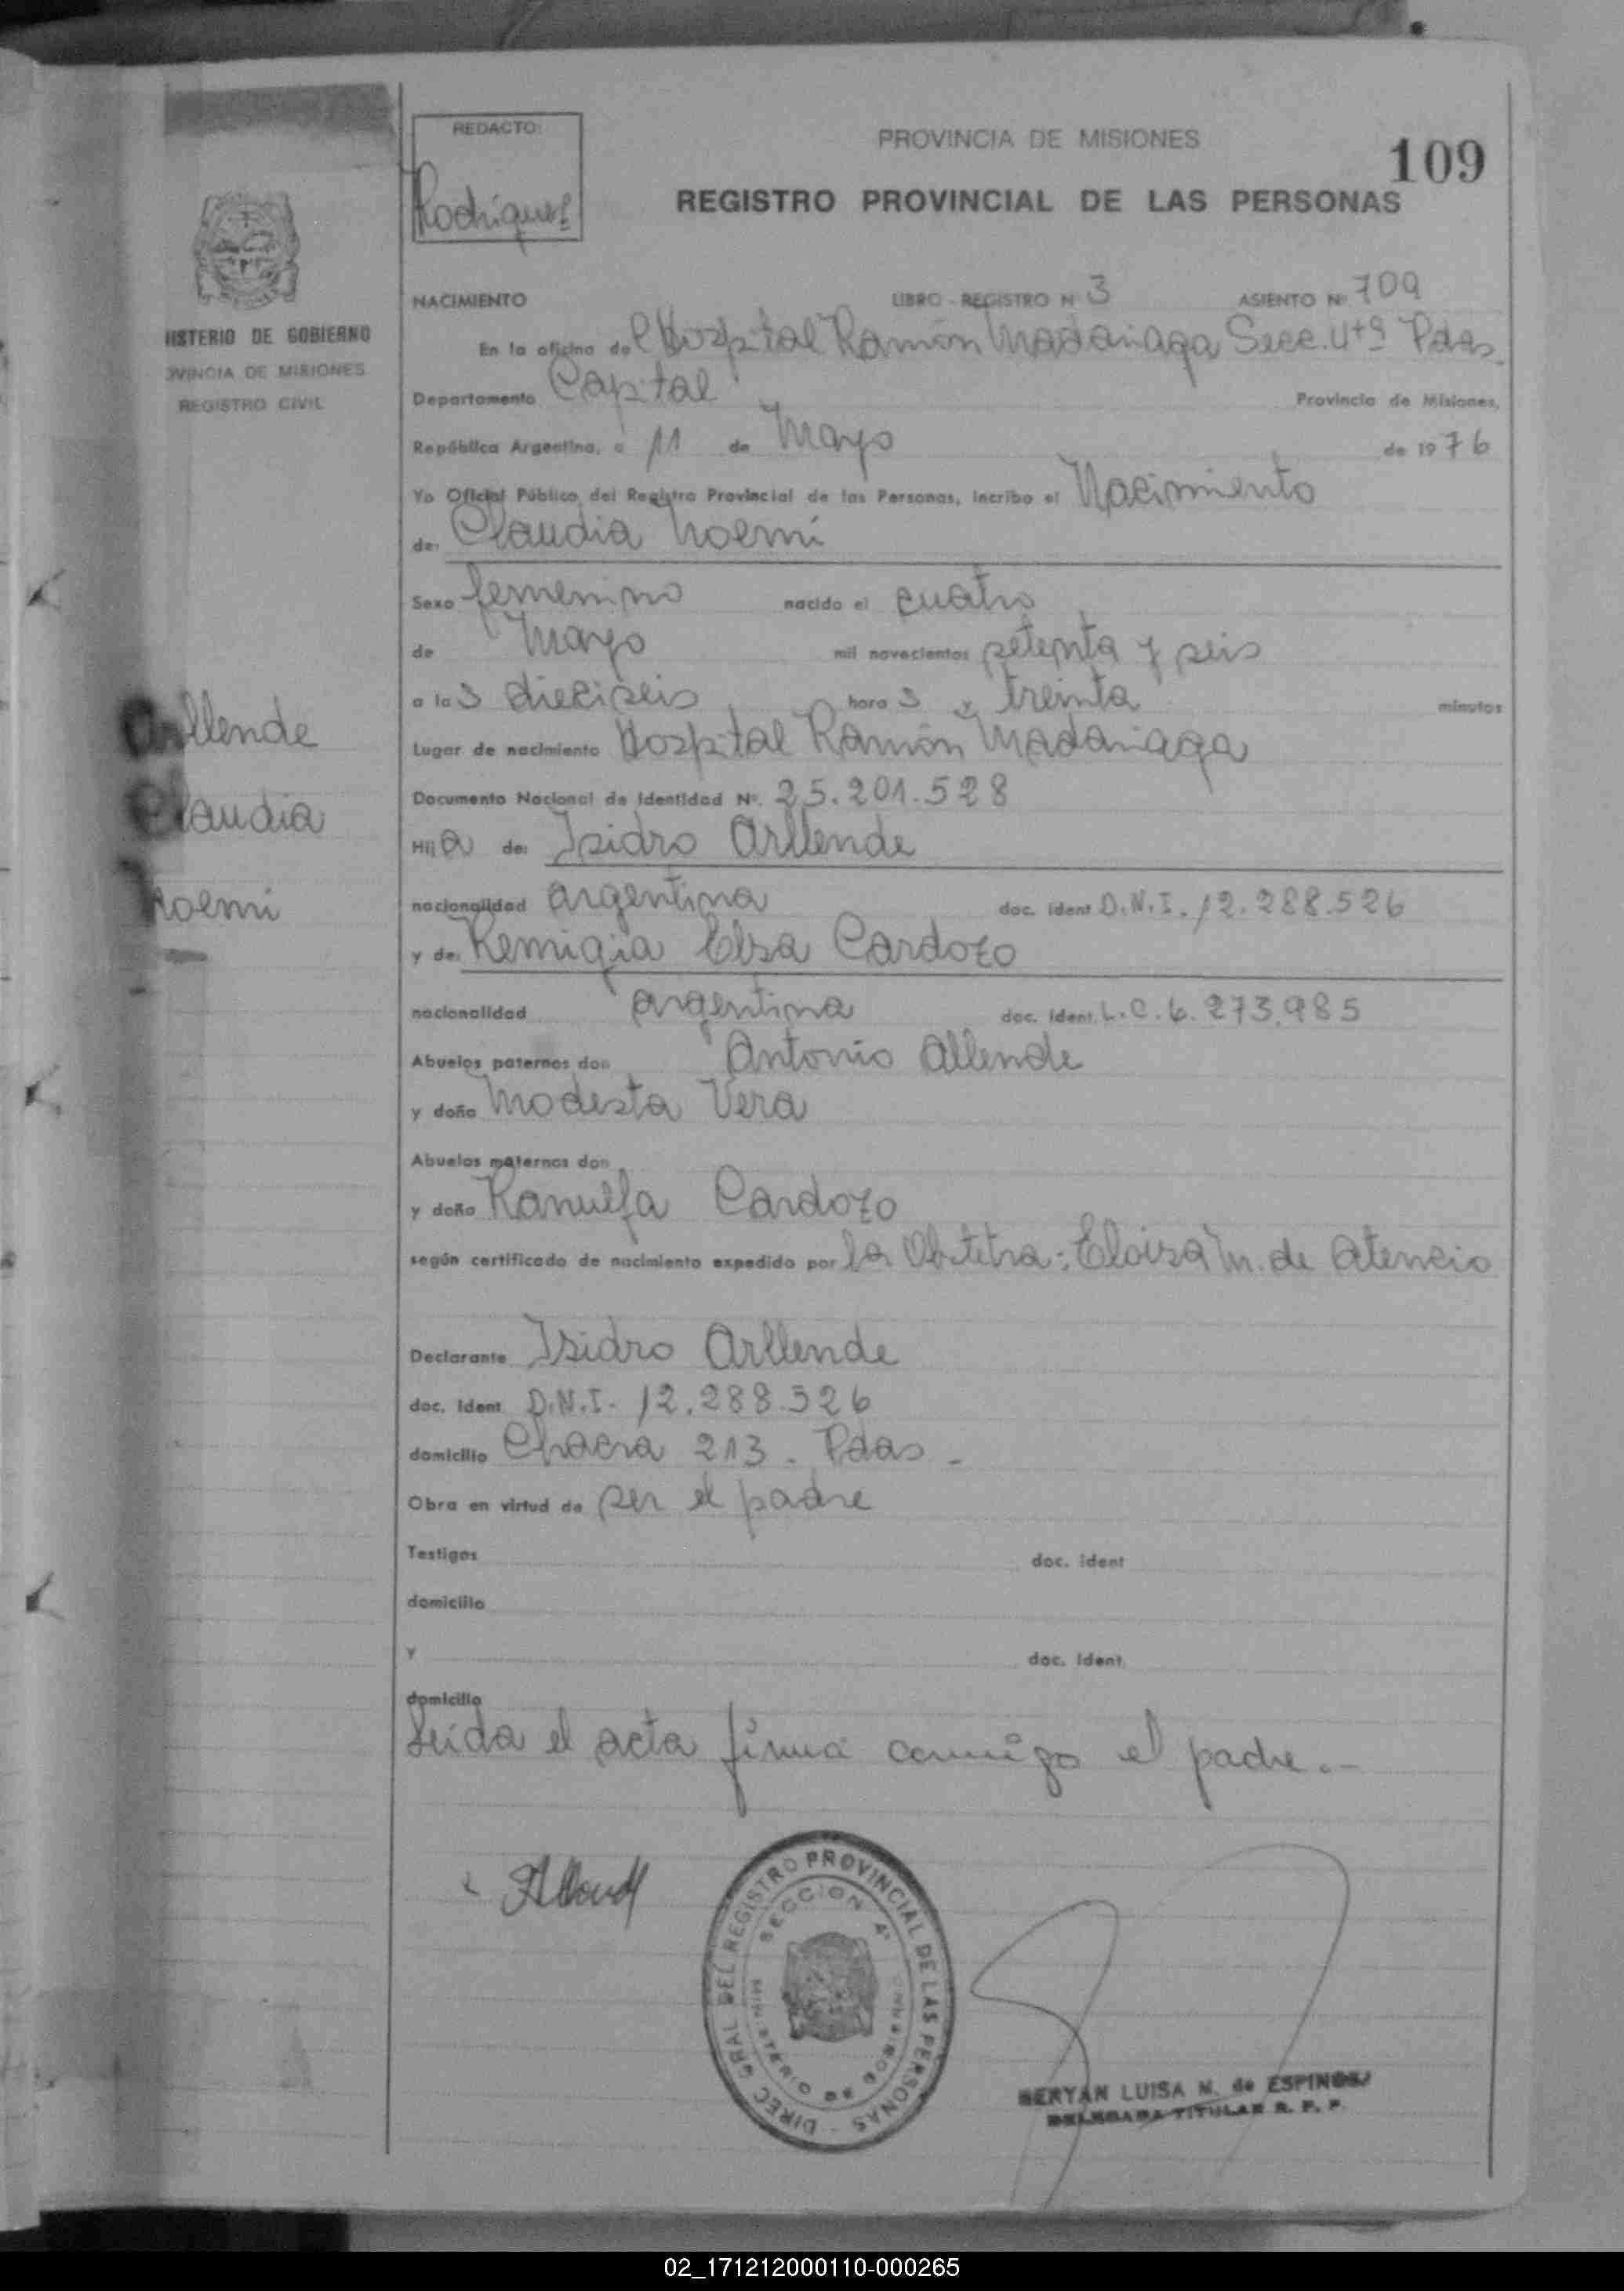 REDACTO:
Rodriguez
PROVINCIA DE MISIONES
109
REGISTRO PROVINCIAL DE LAS PERSONAS
NISTERIO DE GOBIERNO
OVINCIA DE MISIONES
REGISTRO CIVIL
NACIMIENTO LIBRO - REGISTRO N 3 ASIENTO Nº 709
En la oficina del Hospital Ramón Madariaga Secc. 4ta Pdas.
Departamento Capital Provincia de Misiones,
República Argentina, a 11 de Mayo de 1976
Yo Oficial Público del Registro Provincial de las Personas, incribo el Nacimiento
de: Claudia Noemi
Sexo femenino nacido el cuatro
de Mayo mil novecientos setenta y seis
a las dieciseis horas y treinta minutos
Lugar de nacimiento Hospital Ramón Madariaga
Documento Nacional de Identidad Nº. 25.201.528
Hija de: Isidro Arllende
nacionalidad argentina doc. ident D.N.I. 12.288.526
y de: Remigia Elsa Cardozo
nacionalidad argentina doc. ident. L.C. 6.273.985
Abuelos paternos don Antonio Allende
y doña Modesta Vera
Abuelos maternos don
y doña Ranulfa Cardozo
según certificado de nacimiento expedido por la Obstetra: Eloisa M. de Atencio
Declarante Isidro Arllende
doc. Ident D.N.I. 12.288.526
domicilio Chacra 213 - Pdas -
Obra en virtud de ser el padre
Testigos doc. ident
domicilio
y doc. Ident.
domicilio
Leida el acta firma conmigo el padre.-
Arllende
Claudia
Noemi
DIREC. GRAL DEL REGISTRO PROVINCIAL DE LAS PERSONAS
SECCION 4ª
MINISTERIO DE GOBIERNO
LUISA M. de ESPINOSA
DELEGADA TITULAR R. P. P.
02_171212000110-000265